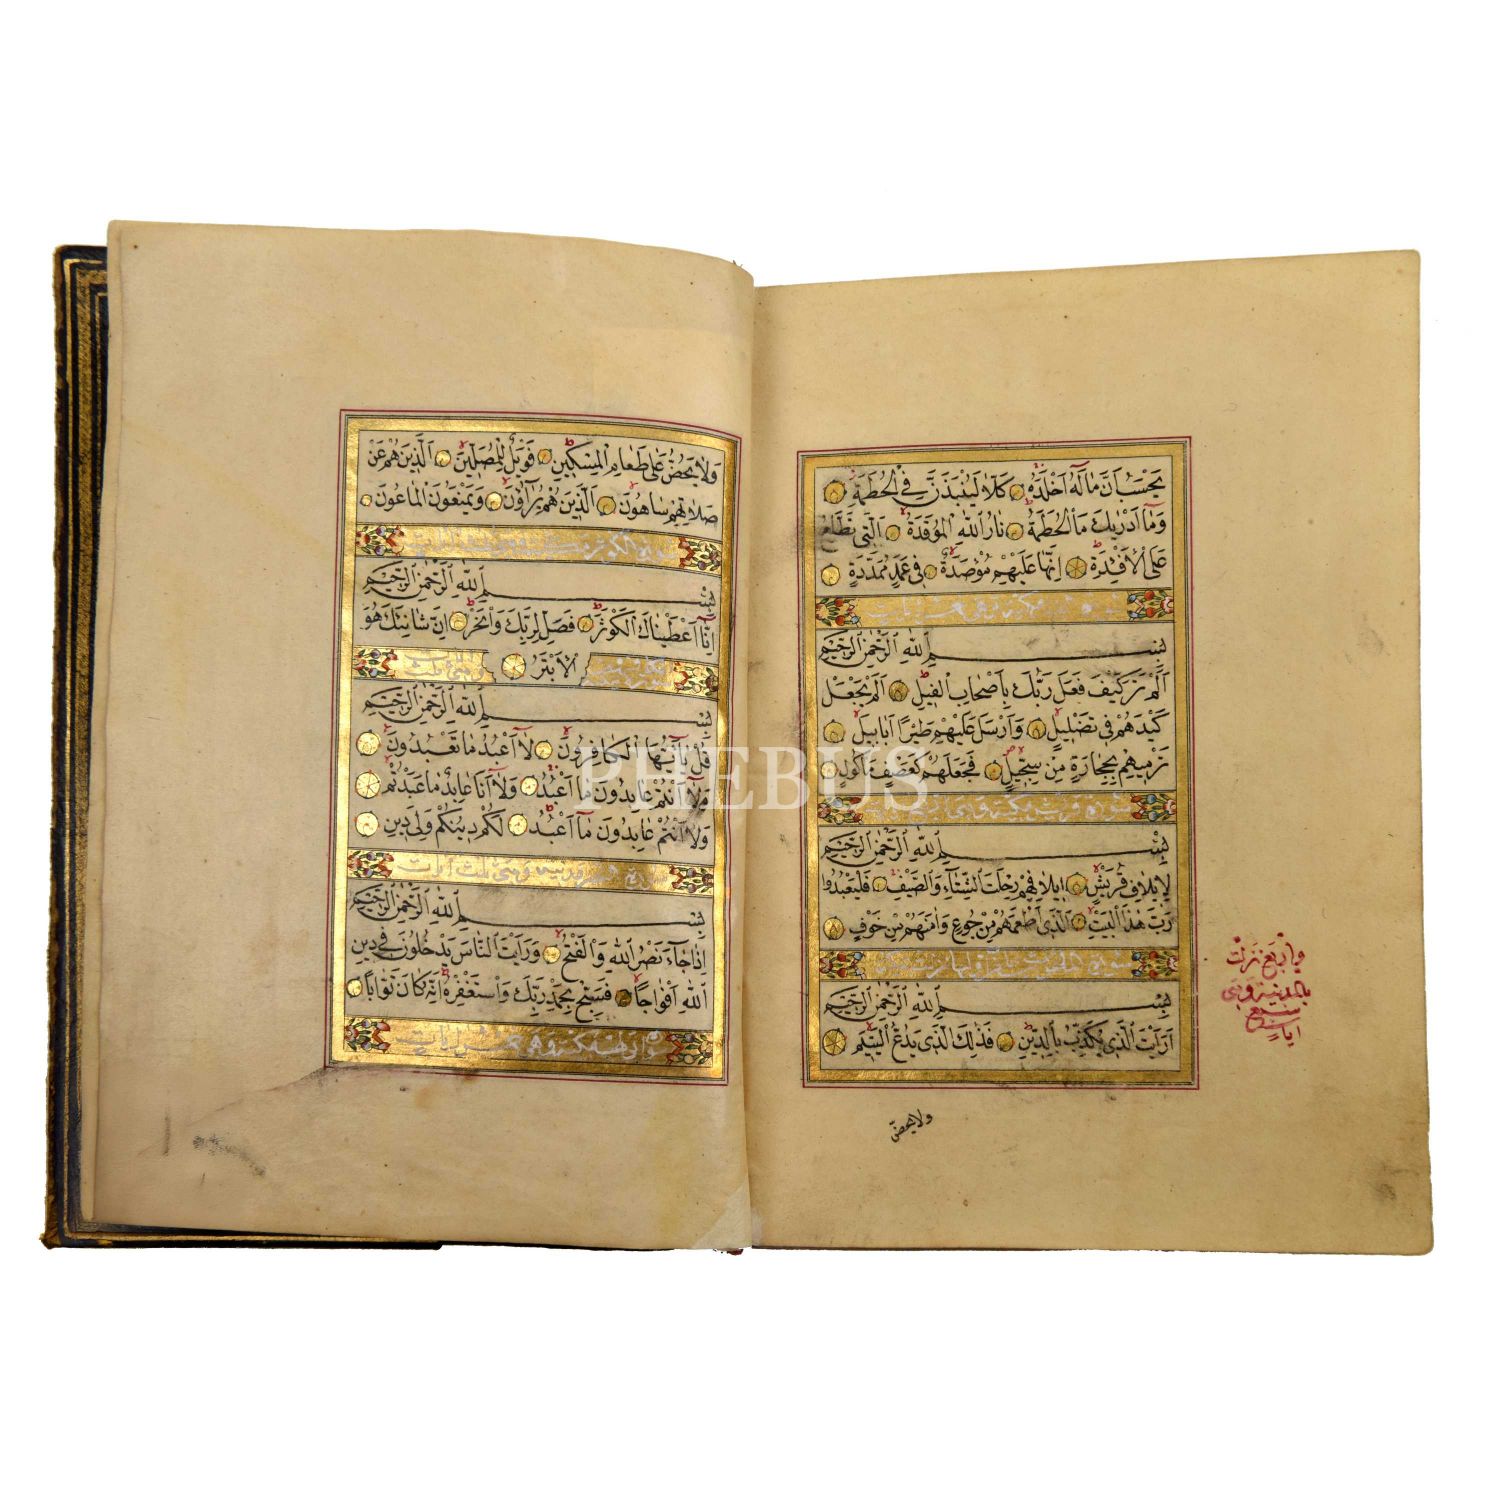 يَحْسَبُ اَنَّ مَالَهُ اَخْلَدَهُ كَلَّا لَيُنْبَذَنَّ فِي الْحُطَمَةِ
وَمَا اَدْرٰيكَ مَا الْحُطَمَةُ نَارُ اللّٰهِ الْمُوقَدَةُ اَلَّتِي تَطَّلِعُ
عَلَى الْاَفْئِدَةِ اِنَّهَا عَلَيْهِمْ مُؤْصَدَةٌ فِي عَمَدٍ مُمَدَّدَةٍ
بِسْمِ اللّٰهِ الرَّحْمٰنِ الرَّحِيمِ
اَلَمْ تَرَ كَيْفَ فَعَلَ رَبُّكَ بِاَصْحَابِ الْفِيلِ اَلَمْ يَجْعَلْ
كَيْدَهُمْ فِي تَضْلِيلٍ وَاَرْسَلَ عَلَيْهِمْ طَيْرًا اَبَابِيلَ
تَرْمِيهِمْ بِحِجَارَةٍ مِنْ سِجِّيلٍ فَجَعَلَهُمْ كَعَصْفٍ مَأْكُولٍ
سورة قريش مكية وهي
بِسْمِ اللّٰهِ الرَّحْمٰنِ الرَّحِيمِ
لِاِيلَافِ قُرَيْشٍ اِيلَافِهِمْ رِحْلَةَ الشِّتَاءِ وَالصَّيْفِ فَلْيَعْبُدُوا
رَبَّ هٰذَا الْبَيْتِ اَلَّذِي اَطْعَمَهُمْ مِنْ جُوعٍ وَاٰمَنَهُمْ مِنْ خَوْفٍ
بِسْمِ اللّٰهِ الرَّحْمٰنِ الرَّحِيمِ
اَرَاَيْتَ الَّذِي يُكَذِّبُ بِالدِّينِ فَذٰلِكَ الَّذِي يَدُعُّ الْيَتِيمَ
ولا يحضّ
وأربع نزلت
بالمدينة وهي
سبع
ايات
وَلَا يَحُضُّ عَلَى طَعَامِ الْمِسْكِينِ فَوَيْلٌ لِلْمُصَلِّينَ اَلَّذِينَ هُمْ عَنْ
صَلَاتِهِمْ سَاهُونَ اَلَّذِينَ هُمْ يُرَاؤُنَ وَيَمْنَعُونَ الْمَاعُونَ
سورة الكوثر
بِسْمِ اللّٰهِ الرَّحْمٰنِ الرَّحِيمِ
اِنَّا اَعْطَيْنَاكَ الْكَوْثَرَ فَصَلِّ لِرَبِّكَ وَانْحَرْ اِنَّ شَانِئَكَ هُوَ
الْاَبْتَرُ
بِسْمِ اللّٰهِ الرَّحْمٰنِ الرَّحِيمِ
قُلْ يَا اَيُّهَا الْكَافِرُونَ لَا اَعْبُدُ مَا تَعْبُدُونَ
وَلَا اَنْتُمْ عَابِدُونَ مَا اَعْبُدُ وَلَا اَنَا عَابِدٌ مَا عَبَدْتُمْ
وَلَا اَنْتُمْ عَابِدُونَ مَا اَعْبُدُ لَكُمْ دِينُكُمْ وَلِيَ دِينِ
بِسْمِ اللّٰهِ الرَّحْمٰنِ الرَّحِيمِ
اِذَا جَاءَ نَصْرُ اللّٰهِ وَالْفَتْحُ وَرَاَيْتَ النَّاسَ يَدْخُلُونَ فِي دِينِ
اللّٰهِ اَفْوَاجًا فَسَبِّحْ بِحَمْدِ رَبِّكَ وَاسْتَغْفِرْهُ اِنَّهُ كَانَ تَوَّابًا
PHEBUS